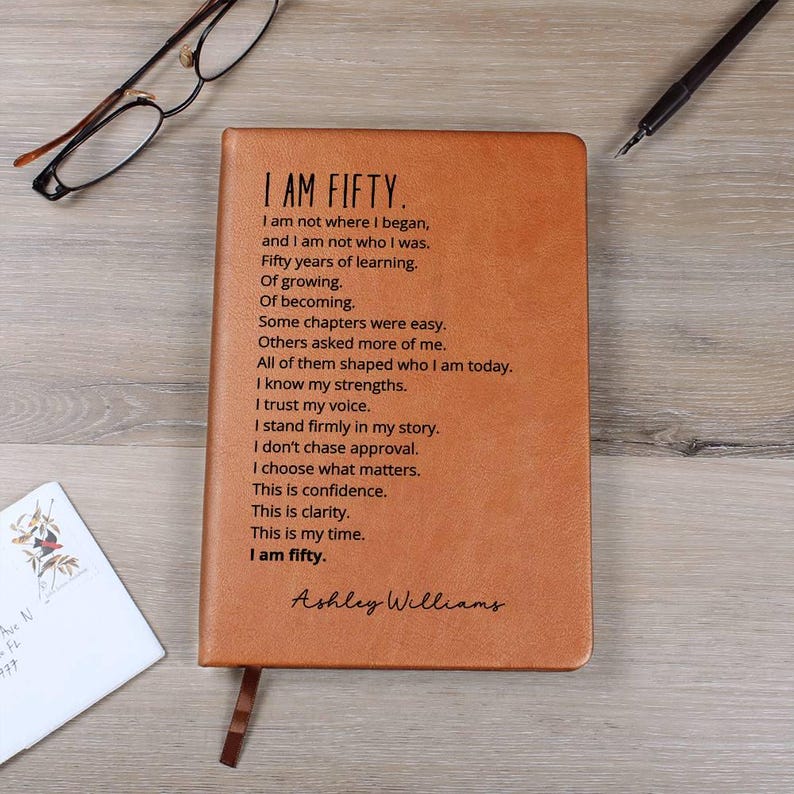 I AM FIFTY.
I am not where I began,
and I am not who I was.
Fifty years of learning.
Of growing.
Of becoming.
Some chapters were easy.
Others asked more of me.
All of them shaped who I am today.
I know my strengths.
I trust my voice.
I stand firmly in my story.
I don't chase approval.
I choose what matters.
This is confidence.
This is clarity.
This is my time.
I am fifty.
Ashley Williams
Ave N
FL
977